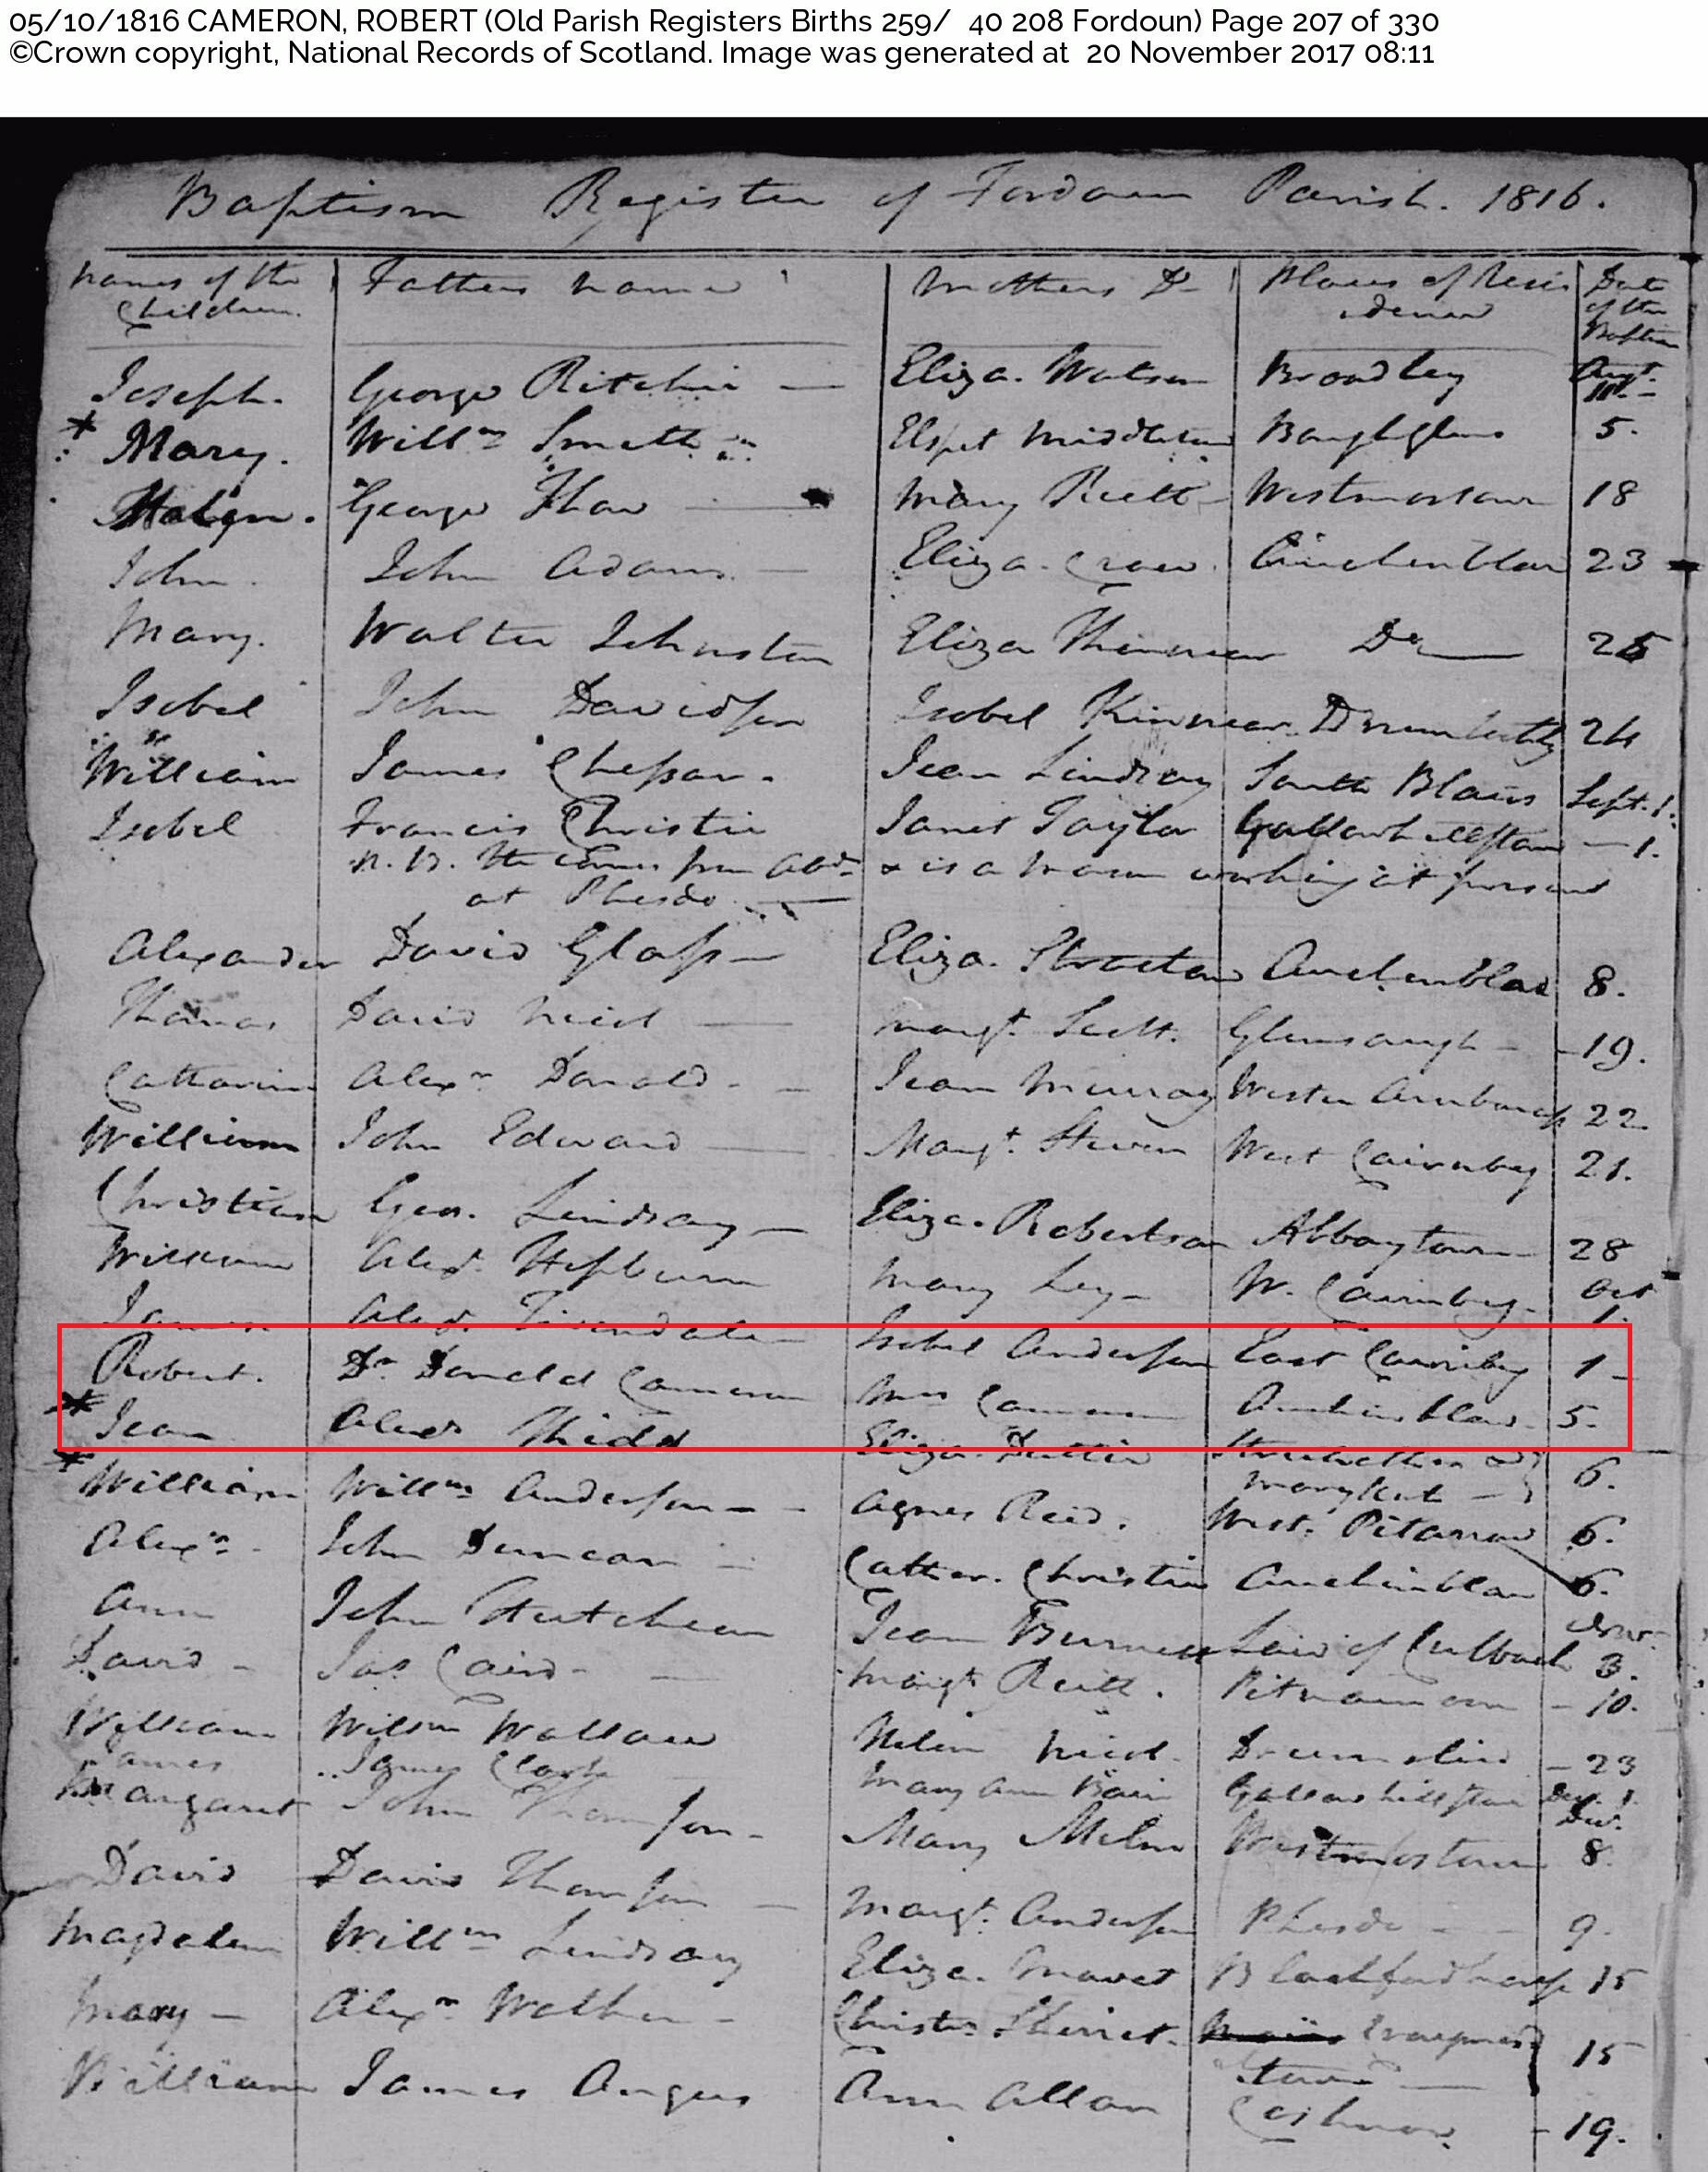 05/10/1816 CAMERON, ROBERT (Old Parish Registers Births 259/ 40 208 Fordoun) Page 207 of 330
©Crown copyright, National Records of Scotland. Image was generated at 20 November 2017 08:11
Baptism Register of Fordoun Parish. 1816.
Names of the Children. Fathers name Mothers Do Places of Residence Date of the Baptism
Joseph. George Ritchie — Eliza. Watson Broadley Augt.
* Mary. Willm Smith Elspet Middleton 5.
Helen. George Thow Mary Reith Westmostown 18
John. John Adam — Eliza. Crow Auchenblae 23
Mary. Walter Johnston Eliza Kinnear Do — 25
Isobel John Davidson Isobel Kinnear Drumtochty 24
William James Chessar. Jean Lindsay South Blairs Sept. 1.
Isobel Francis Christie Janet Taylor — 1.
N. B. He comes from Abdn & is a mason working at present
at Phesdo. —
Alexander David Glass — Eliza. Stracton Auchenblae 8.
Thomas David Nicol — Margt. Scott. Glensaugh — 19.
Catharine Alexr Donald — Jean Murray Wester 22
William John Edward — Margt. Steven West Cairnbeg 21.
Christian Geo. Lindsay — Eliza. Robertson Abbeytown 28
William Alexr. Hepburn Mary Ley — W. Cairnbeg. Oct 1.
James Alexr. Tevendale — Isobel Anderson East Cairnbeg 1
Robert. Dr Donald Cameron Mrs Cameron Auchinblae 5.
* Jean Alexr Kidd Eliza. Duthie Marykirk 6.
* William Willm Anderson — Agnes Reid. West. Pitarrow 6.
Alexr. John Duncan — Cather. Christie Auchinblae 6.
Ann John Hutcheon Jean Burness Law of 3.
David — Jas Caird — Margt Reith. Pitnamoon — 10.
William Willm Wallace Helen Nicol. Drumsleid — 23
James James Clark Mary Ann Bain Dec. 1.
Margaret John Thomson — Mary Milne Westmostown Dec. 8.
David David Thomson — Margt. Anderson Phesdo — 9.
Magdalen Willm Lindsay Eliza. Mavet 15
Mary — Alexr Walker — Christn. 15
William James Angus Ann Allan — 19.